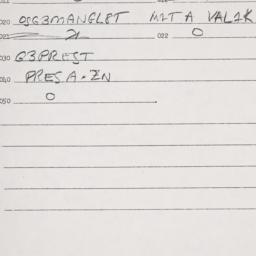 020 OSG3MANGL8T MIT A VAL1K
021 21 022 0
030 G3PREST
040 PRESA-ZN
050 0